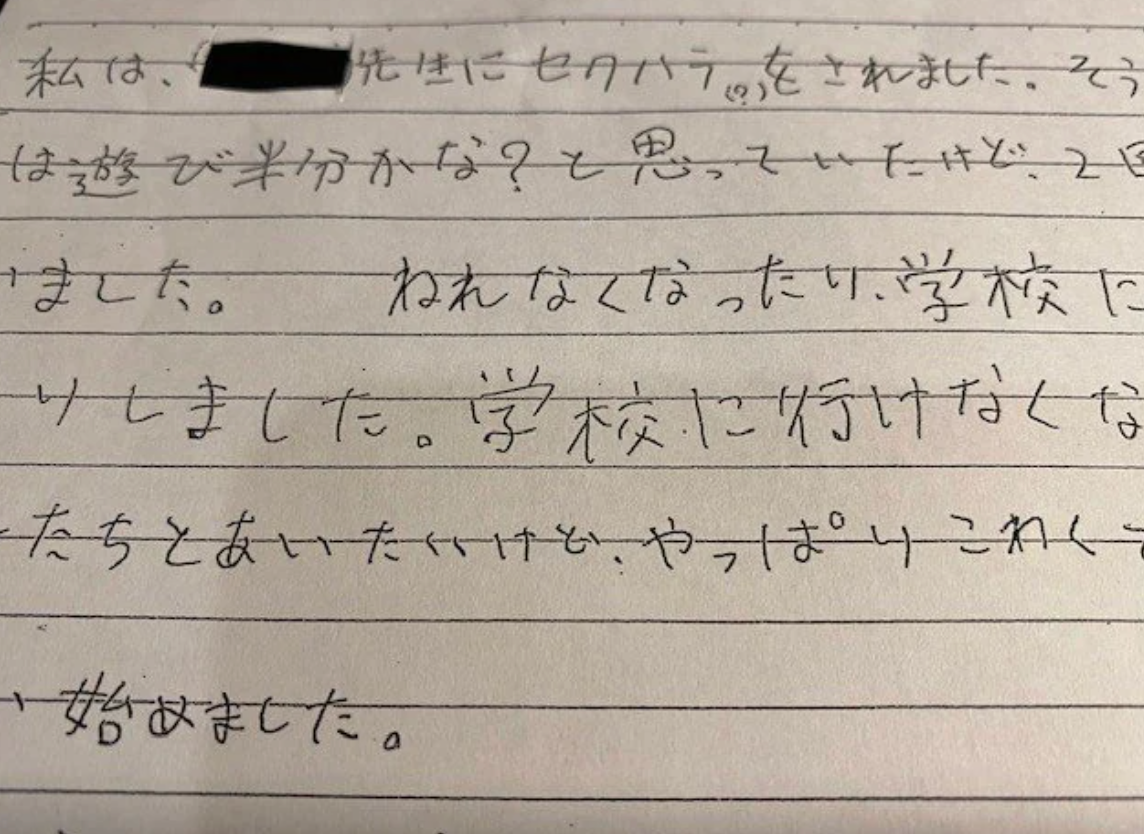 私は、先生にセクハラ(?)をされました。そう
は遊び半分かな?と思っていたけど、2回
ました。 ねれなくなったり、学校に
りしました。学校に行けなくな
たちとあいたいけど、やっぱりこわく
始めました。